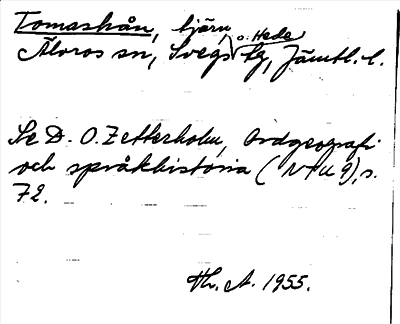 Tomaskån, bjärn,
Älvros sn, Svegs o. Hede tg, Jämtl. l.
Se D. O. Zetterholm, Ordgeografi
och språkhistoria (NTU 9), s.
72.
Th. A. 1955.